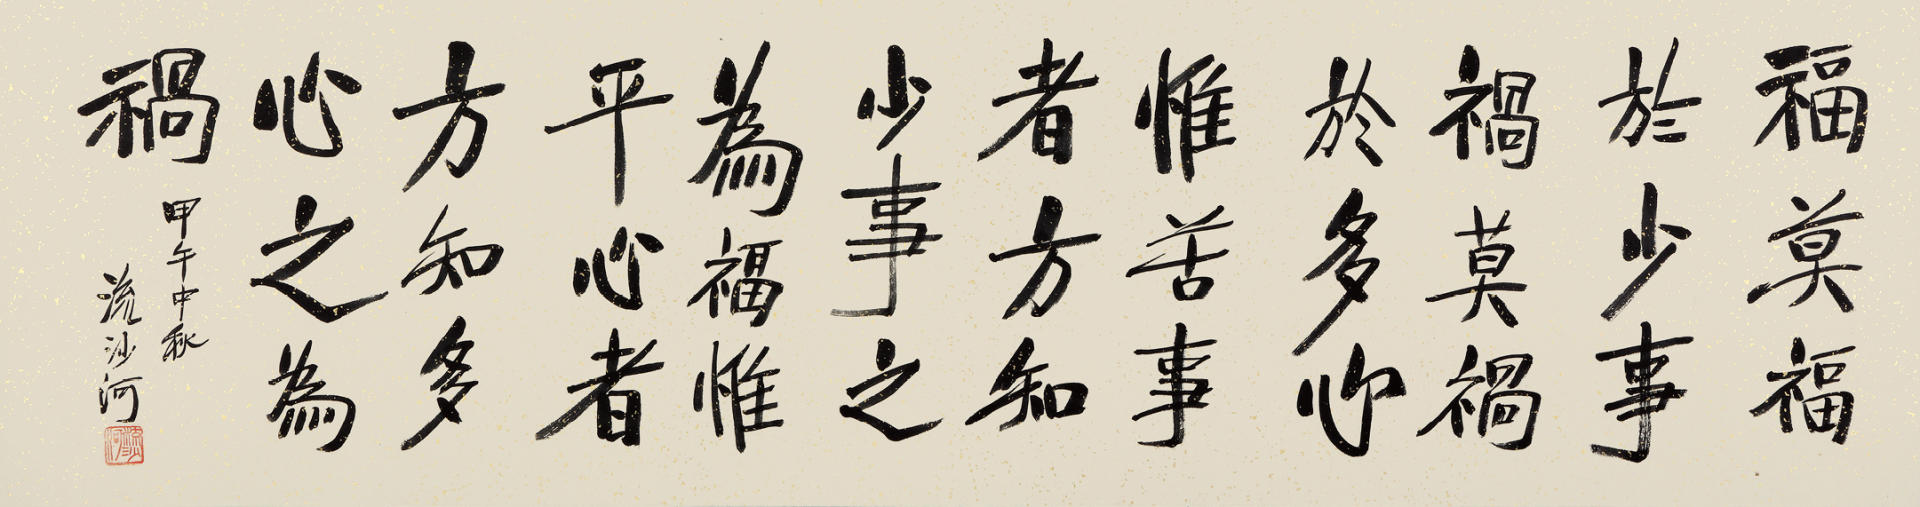 福莫福
於少事
禍莫禍
於多心
惟苦事
者方知
少事之
為福惟
平心者
方知多
心之為
禍
甲午中秋
流沙河
流沙河